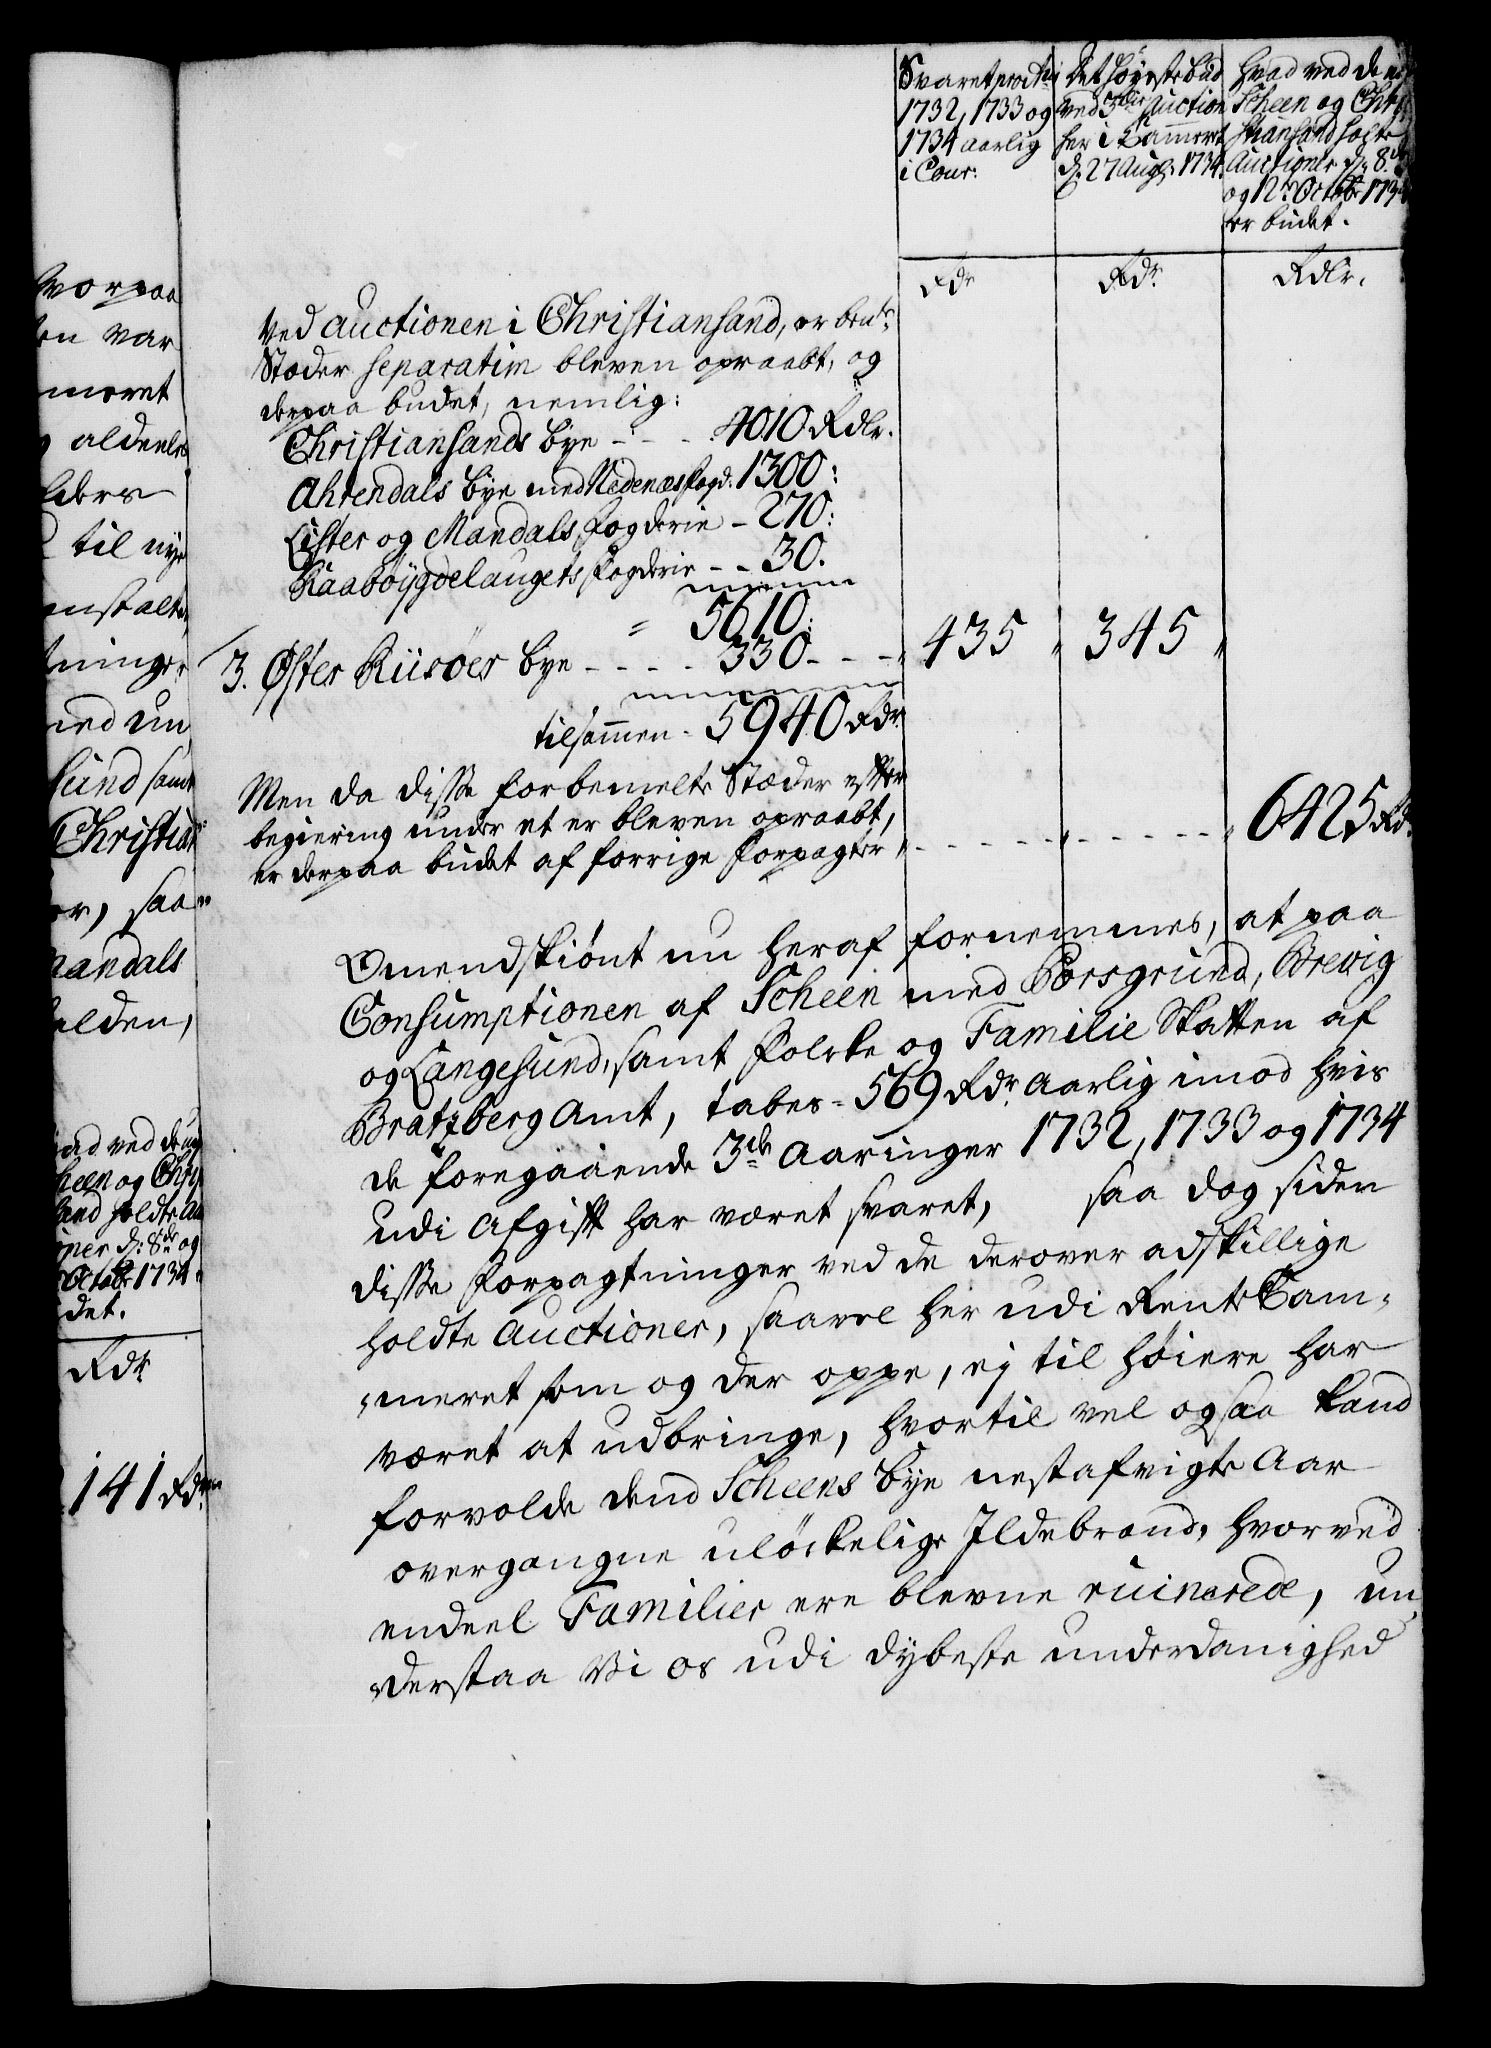 Svaret pro
1732, 1733 og
1734 aarlig
i Cour:
Det höyeste bud
ved 3die Auction
her i Cammeret
d. 27 Aug: 1734.
Hvad ved de i
Scheen og Chri
stiansand holte
Auctioner d. 8de
og 12te Octobr 1734
er budet.
Rdr
Rdr.
Rdlr.
Ved auctionen i Christiansand, er bemte
Stæder separatim bleven opraabt, og
derpaa budet, nemlig:
Christiansands bye - - - 4010 Rdlr.
Ahrendals bye med Nedenæs fogd: 1300:
Lister og Mandals fogderie - 270:
Raaböygdelaugets fogderie - - 30.
= 5610:
3. Øster Riisöer bye - - - - 330 - - - 435 345
tilsammen - 5940 Rdr
Men da disse forbemelte Stæder efter
begiering under et er bleven opraabt,
er derpaa budet af forrige forpagter, - - - - - - - - - - 6425 Rdr
Omendskiönt nu heraf fornemmes, at paa
Consumptionen af Scheen med Porsgrund, Brewig
og Langesund, samt Folcke og Familie Skatten af
Bratzberg Amt, tabes = 569 Rdr. Aarlig imod hvis
de foregaaende 3de Aaringer 1732, 1733 og 1734
udi Afgift har været svaret, saa dog siden
disse Forpagtninger ved de derover adskillige
holdte Auctioner, saavel her udi RenteCam-
meret som og der oppe, ej til höiere har
været at udbringe, hvortil vel ogsaa kand
forvolde dend Scheens bye nestafvigte Aar
overgangne ulöckelige Ildebrand, hvorved
endeel Familier ere blevne ruinerede, un-
derstaa Vi os udi dybeste underdanighed
hvorpaa
en var
meret
aldeeles
elders
til nye
anstalte
tninger
med un
sund samt
Christian
er, saa
Mandals
holden,
ad ved de
heen og Chri
sand holdte Au
oner d. 8de og
Octobr 1734
det.
Rdr
141 Rdr